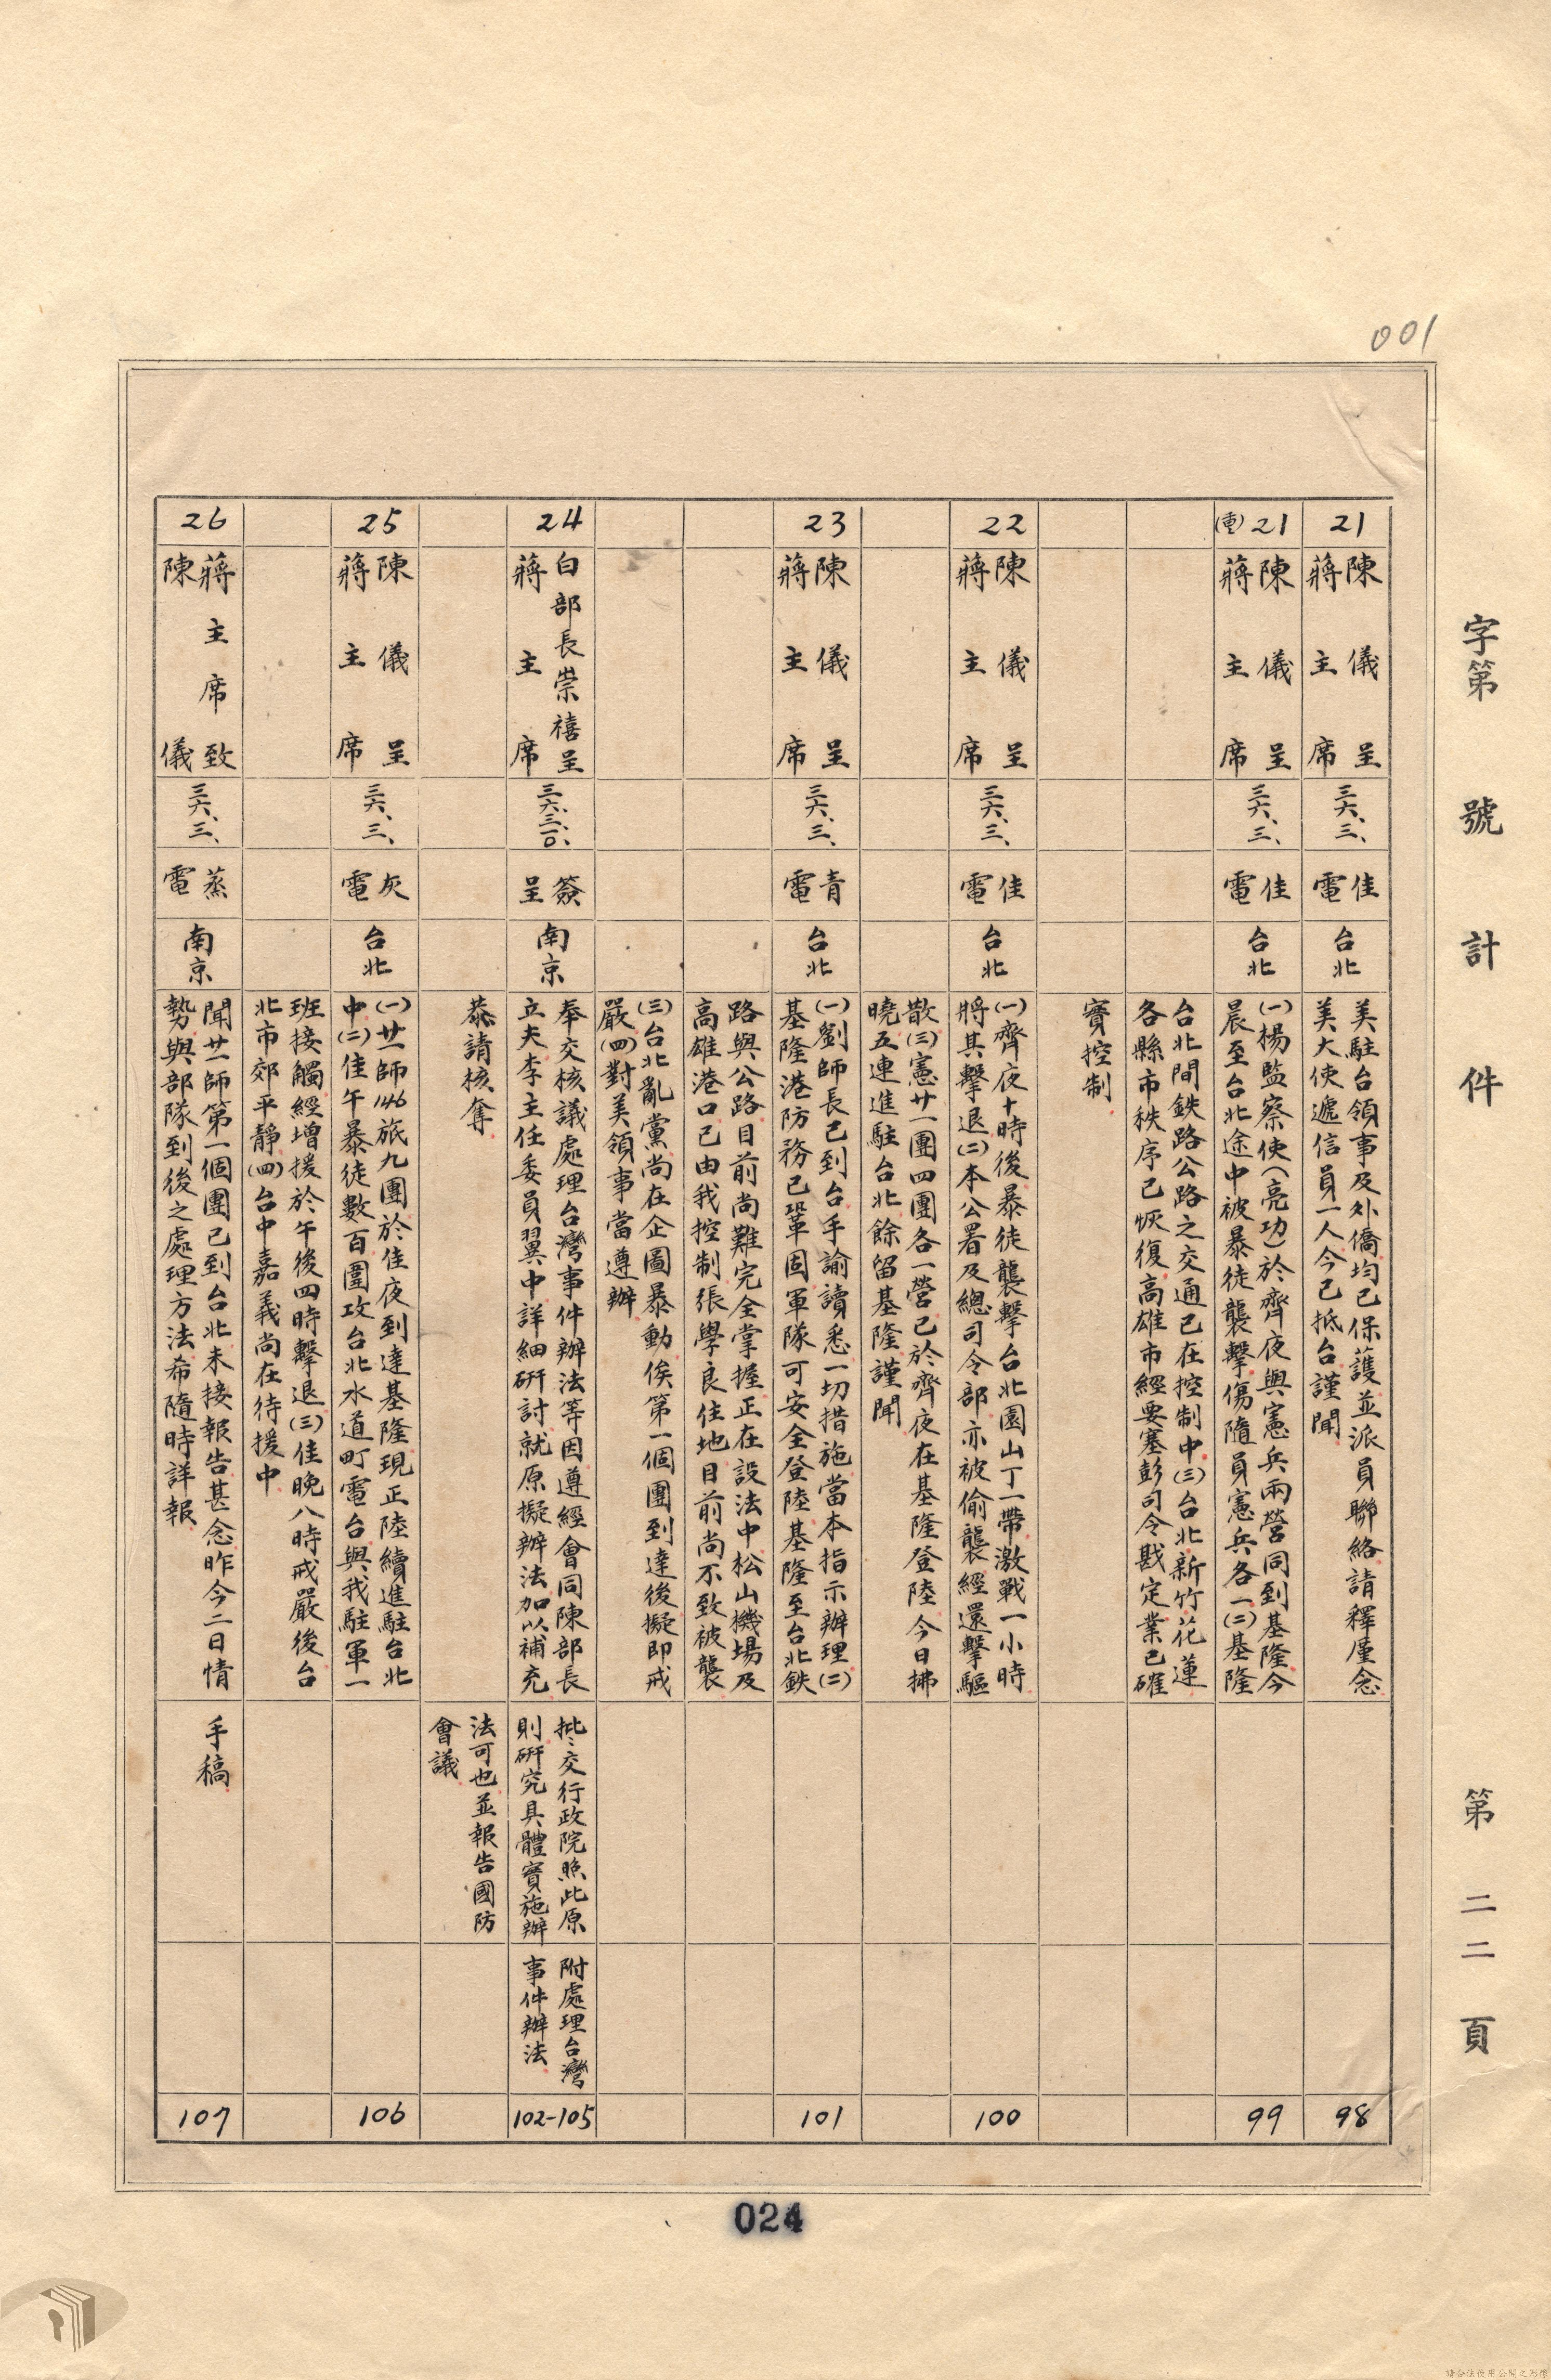 001
字第　號　計　件　第二二頁
21
陳儀呈
蔣主席
三六、三、
佳
電
台北
美駐台領事及外僑均已保護並派員聯絡請釋廑念
美大使遞信員一人今已抵台謹聞
98
21
(重)
陳儀呈
蔣主席
三六、三、
佳
電
台北
(一)楊監察使(亮功)於齊夜與憲兵兩營同到基隆今
晨至台北途中被暴徒襲擊傷隨員憲兵各一(二)基隆
台北間鉄路公路之交通已在控制中(三)台北新竹花蓮
各縣市秩序已恢復高雄市經要塞彭司令戡定業已確
實控制
99
22
陳儀呈
蔣主席
三六、三、
佳
電
台北
(一)齊夜十時後暴徒襲擊台北圓山丁一帶激戰一小時
將其擊退(二)本公署及總司令部亦被偷襲經還擊驅
散(三)憲廿一團四團各一營已於齊夜在基隆登陸今日拂
曉五連進駐台北餘留基隆謹聞
100
23
陳儀呈
蔣主席
三六、三、
青
電
台北
(一)劉師長已到台手諭讀悉一切措施當本指示辦理(二)
基隆港防務已鞏固軍隊可安全登陸基隆至台北鉄
路與公路目前尚難完全掌握正在設法中松山機場及
高雄港口已由我控制張學良住地目前尚不致被襲
(三)台北亂黨尚在企圖暴動俟第一個團到達後擬即戒
嚴(四)對美領事當遵辦
101
24
白部長崇禧呈
蔣主席
三六、三、一〇、
簽
呈
南京
奉交核議處理台灣事件辦法等因遵經會同陳部長
立夫李主任委員翼中詳細研討就原擬辦法加以補充
恭請核奪
批:交行政院照此原
則研究具體實施辦
法可也並報告國防
會議
附處理台灣
事件辦法
102-105
25
陳儀呈
蔣主席
三六、三、
灰
電
台北
(一)廿一師146旅九團於佳夜到達基隆現正陸續進駐台北
中(二)佳午暴徒數百圍攻台北水道町電台與我駐軍一
班接觸經增援於午後四時擊退(三)佳晚八時戒嚴後台
北市郊平靜(四)台中嘉義尚在待援中
106
26
蔣主席致
陳儀
三六、三、
蒸
電
南京
聞廿一師第一個團已到台北未接報告甚念昨今二日情
勢與部隊到後之處理方法希隨時詳報
手稿
107
024
請合法使用公開之影像